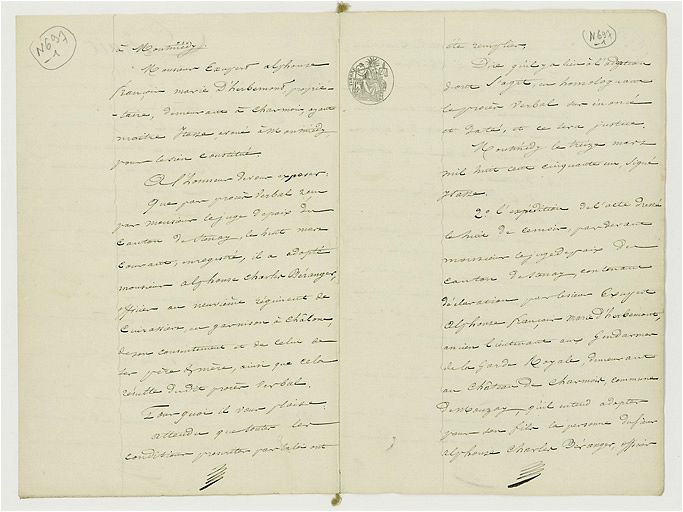 N697
-1
à Montmédy.
Monsieur Exupert alphonse
françois marie d'herbemont, proprié-
-taire, demeurant à Charmois, ayant
maître Hesse avoué à Montmédy
pour le sien constitué.
A l'honneur de vous exposer:
Que par procès verbal reçu
par monsieur le juge de paix du
Canton de Stenay, le huit mars
courant, enregistré, il a adopté
monsieur alphonse Charles Béranger,
officier au neuvième régiment de
Cuirassiers, en garnison à Châlons,
de son consentement et de celui de
ses père & mère, ainsi que cela
résulte dudit procès Verbal.
Pourquoi il vous plaise
attendu que toutes les
conditions prescrites par la loi ont
N697
-1
été remplies,
Dire qu'il y a lieu à l'adoption
dont s'agit, en homologuant
le procès Verbal sus énoncé
et daté, et ce sera justice.
Montmédy le treize mars
mil huit cent cinquante un, signé
Hesse.
2.º l'expédition de l'acte dressé
le huit de ce mois, par devant
monsieur le juge de paix du
canton de Stenay, contenant
déclaration par le sieur Exupert
alphonse françois marie d'herbemont,
ancien lieutenant aux Gendarmes
de la Garde Royale, demeurant
au Château de Charmois, commune
de Mouzay, qu'il entend adopter
pour son fils la personne du sieur
alphonse Charles Béranger, officier